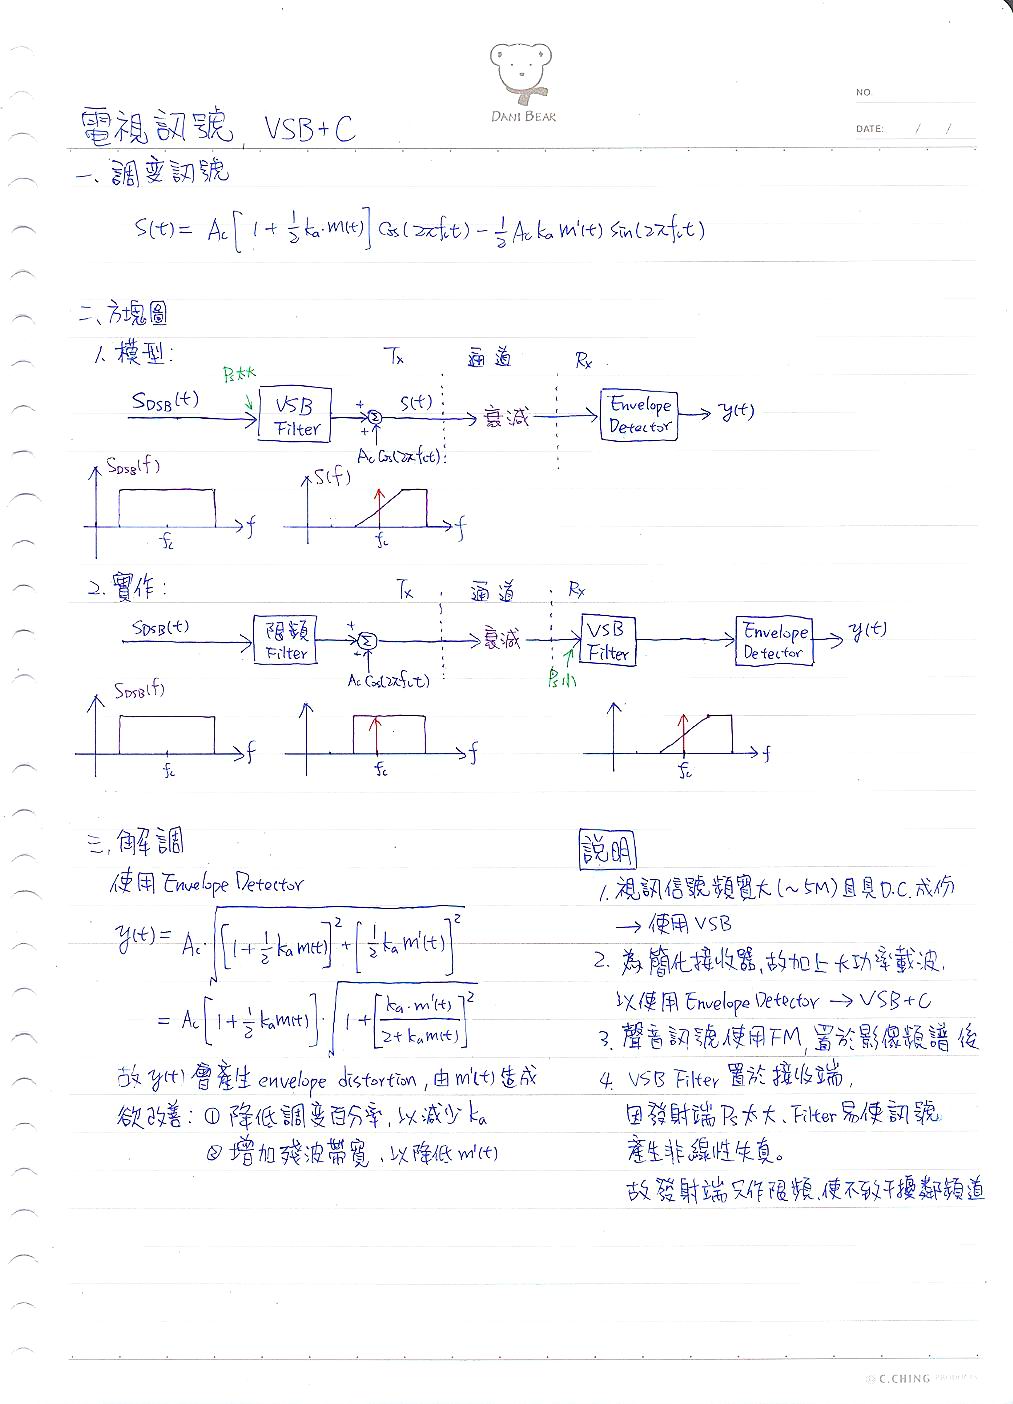 DANI BEAR
NO
DATE: / /
電視訊號, VSB+C
一、調变訊號
S(t) = Ac[1 + ½ ka·m(t)] Cos(2πfct) − ½ Ac ka m'(t) Sin(2πfct)
二、方塊圖
1. 模型:
Tx 通道 Rx
Ps太大
SDSB(t) VSB Filter + + Σ S(t) 衰減 Envelope Detector y(t)
Ac Cos(2πfct)
SDSB(f) fc f
S(f) fc f
2. 實作:
Tx 通道 Rx
SDSB(t) 限頻 Filter + + Σ 衰減 VSB Filter Envelope Detector y(t)
Ac Cos(2πfct) Ps小
SDSB(f) fc f
fc f
fc f
三、解調
使用 Envelope Detector
y(t) = Ac·√([1 + ½ ka m(t)]² + [½ ka m'(t)]²)
= Ac[1 + ½ ka m(t)]·√(1 + [ka·m'(t) / (2 + ka m(t))]²)
故 y(t) 會產生 envelope distortion, 由 m'(t) 造成
欲改善: ① 降低調变百分率, 以減少 ka
② 增加殘波帶寬、以降低 m'(t)
說明
1. 視訊信號頻寬大(~5M)且具D.C.成份
→ 使用 VSB
2. 為簡化接收器, 故加上大功率載波,
以使用 Envelope Detector → VSB+C
3. 聲音訊號使用FM, 置於影像頻譜後
4. VSB Filter 置於接收端,
因發射端 Ps 太大、Filter 易使訊號
產生非線性失真。
故發射端只作限頻, 使不致干擾鄰頻道
C.CHING PRODUCTS